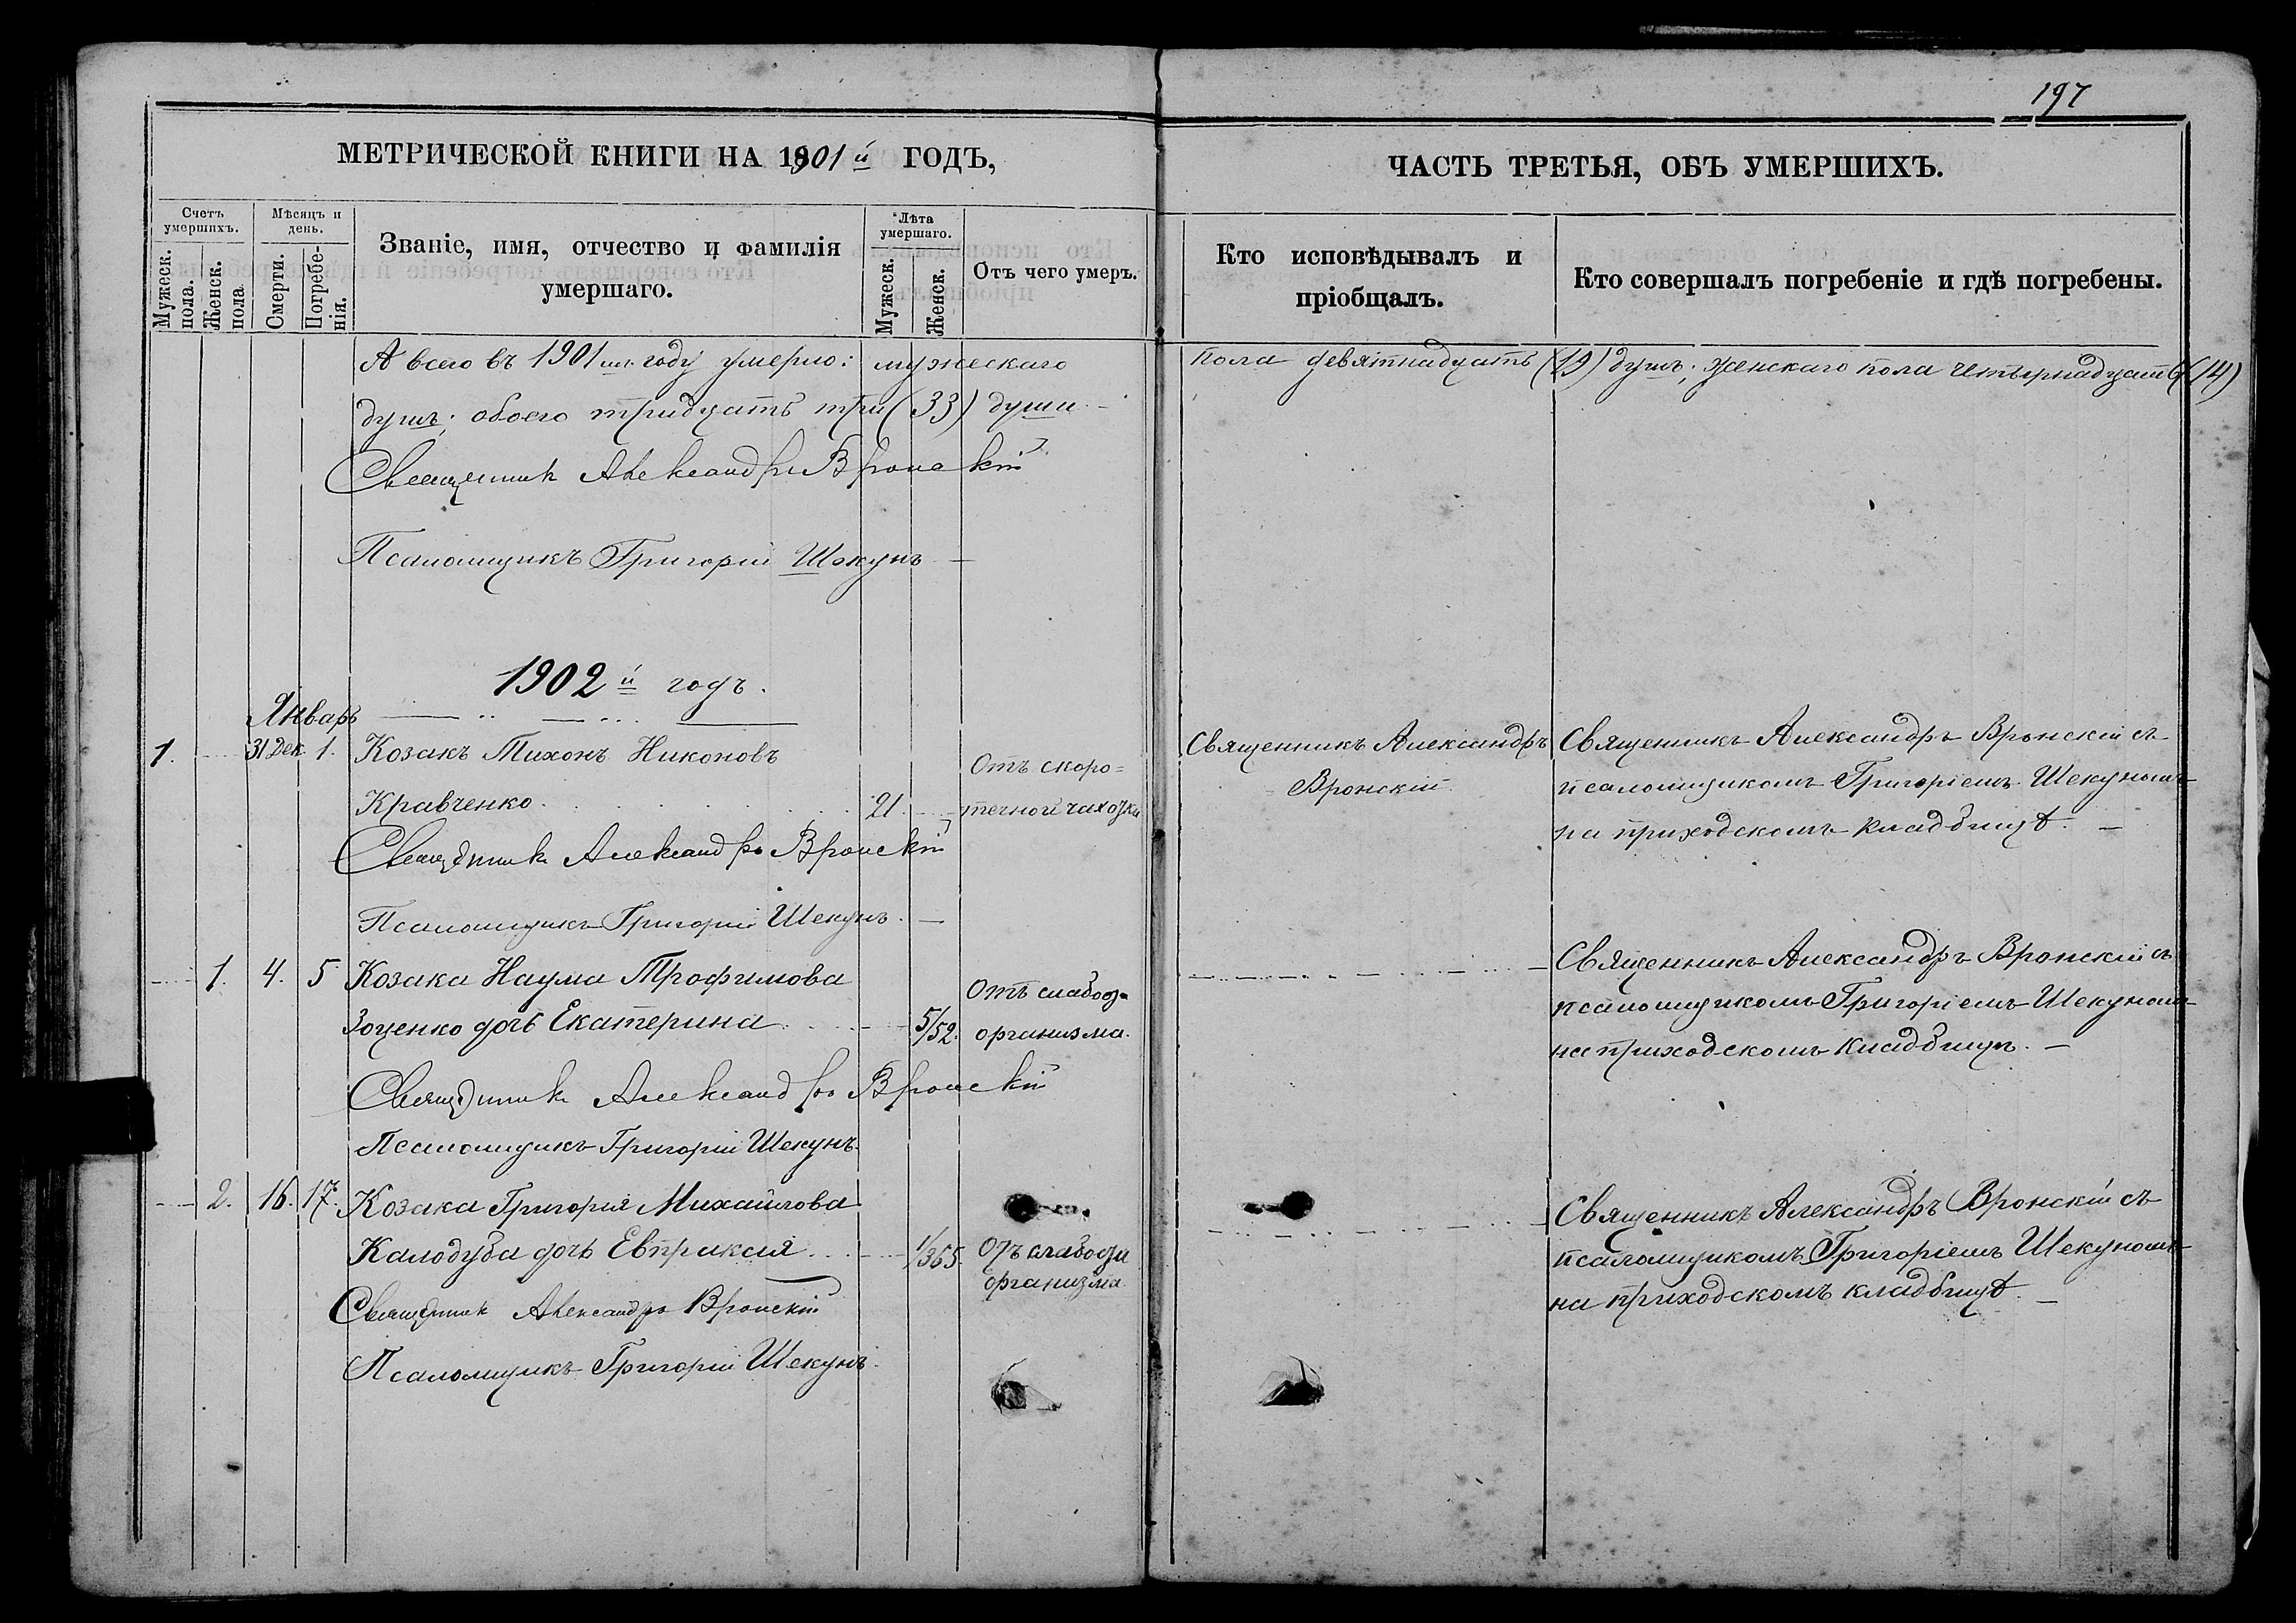 197
МЕТРИЧЕСКОЙ КНИГИ НА 1901й ГОДЪ,
ЧАСТЬ ТРЕТЬЯ, ОБЪ УМЕРШИХЪ.
Счетъ умершихъ.
Мужеск. пола.
Женск. пола.
Мѣсяцъ и день.
Смерти.
Погребенія.
Званіе, имя, отчество и фамилія умершаго.
Лѣта умершаго.
Мужеск.
Женск.
Отъ чего умеръ.
Кто исповѣдывалъ и пріобщалъ.
Кто совершалъ погребеніе и гдѣ погребены.
А всего въ 1901мъ году умерло: мужескаго пола девятнадцать (19) душъ; женскаго пола четырнадцать (14)
душъ; обоего тридцать три (33) души.
Священникъ Александръ Вронскій
Псаломщикъ Григорій Шекунъ
1902й годъ.
Январь
1. 31 Дек. 1. Козакъ Тихонъ Никоновъ
Кравченко 21.
Отъ скоро=
течной чахотки
Священникъ Александръ
Вронскій
Священникъ Александръ Вронскій съ
псаломщикомъ Григоріемъ Шекуномъ
на приходскомъ кладбищѣ.
Священникъ Александръ Вронскій
Псаломщикъ Григорій Шекунъ.
1. 4. 5 Козака Наума Трофимова
Зоценко дочь Екатерина 5/52.
Отъ слабости
организма.
Священникъ Александръ Вронскій съ
псаломщикомъ Григоріемъ Шекуномъ
на приходскомъ кладбищѣ.
Священникъ Александръ Вронскій
Псаломщикъ Григорій Шекунъ.
2. 16. 17. Козака Григорія Михайлова
Калодуба дочь Евпраксія 1/365.
Отъ слабости
организма
Священникъ Александръ Вронскій съ
псаломщикомъ Григоріемъ Шекуномъ
на приходскомъ кладбищѣ.
Священникъ Александръ Вронскій
Псаломщикъ Григорій Шекунъ.